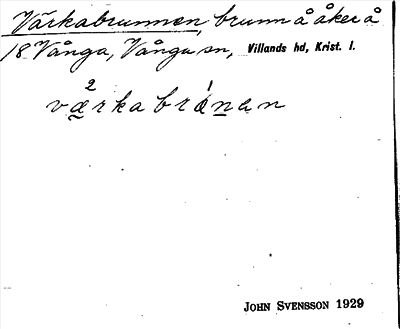 Värkabrunnen, brunn å åker å
18 Vånga, Vånga sn, Villands hd, Krist. l.
JOHN SVENSSON 1929